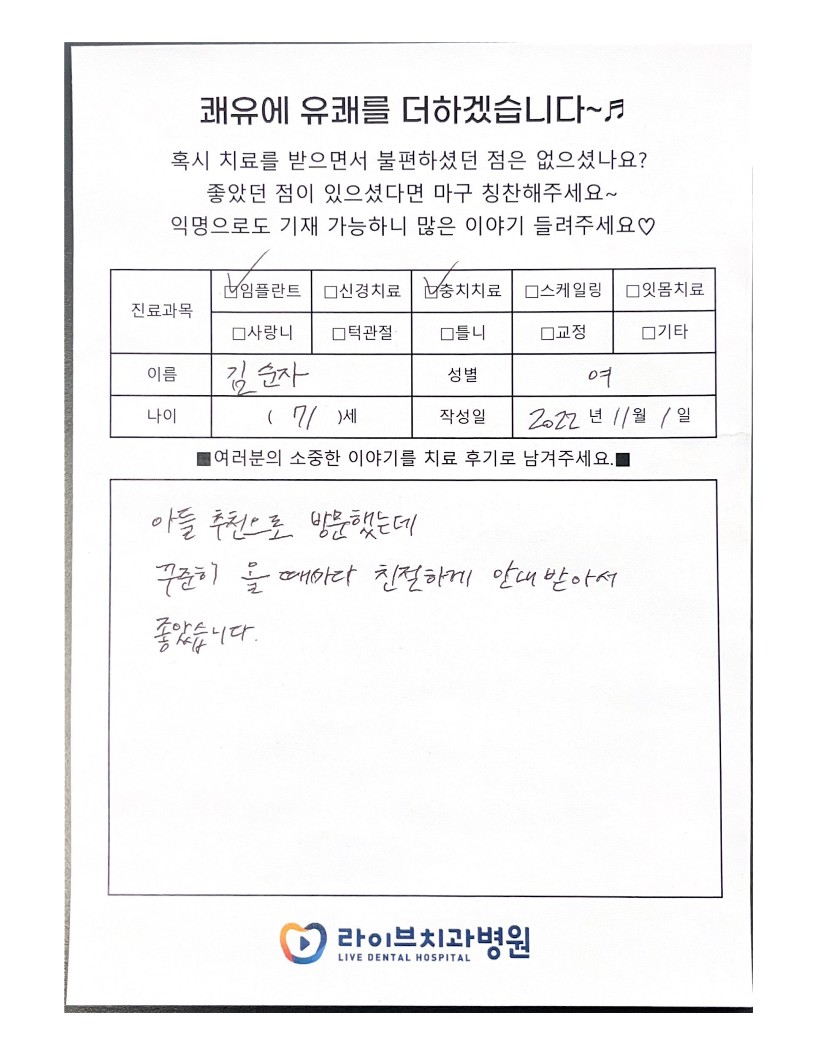 쾌유에 유쾌를 더하겠습니다~♬
혹시 치료를 받으면서 불편하셨던 점은 없으셨나요?
좋았던 점이 있으셨다면 마구 칭찬해주세요~
익명으로도 기재 가능하니 많은 이야기 들려주세요♡
진료과목 ☑임플란트 □신경치료 ☑충치치료 □스케일링 □잇몸치료
□사랑니 □턱관절 □틀니 □교정 □기타
이름 김순자 성별 여
나이 ( 71 )세 작성일 2022 년 11 월 1 일
■여러분의 소중한 이야기를 치료 후기로 남겨주세요.■
아들 추천으로 방문했는데
꾸준히 올 때마다 친절하게 안내받아서
좋았습니다.
라이브치과병원
LIVE DENTAL HOSPITAL